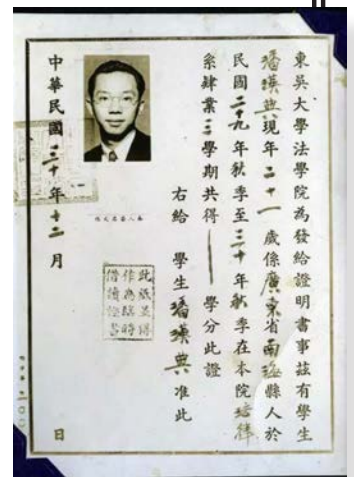 東吳大學法學院為發給證明書事茲有學生
潘璞典現年二十一歲係廣東省南海縣人於
民國二十九年秋季至三十年秋季在本院法律
系肄業三學期共得 學分此證
右給 學生潘璞典准此
此紙並得
作為臨時
借讀證書
中華民國三十年十二月 日